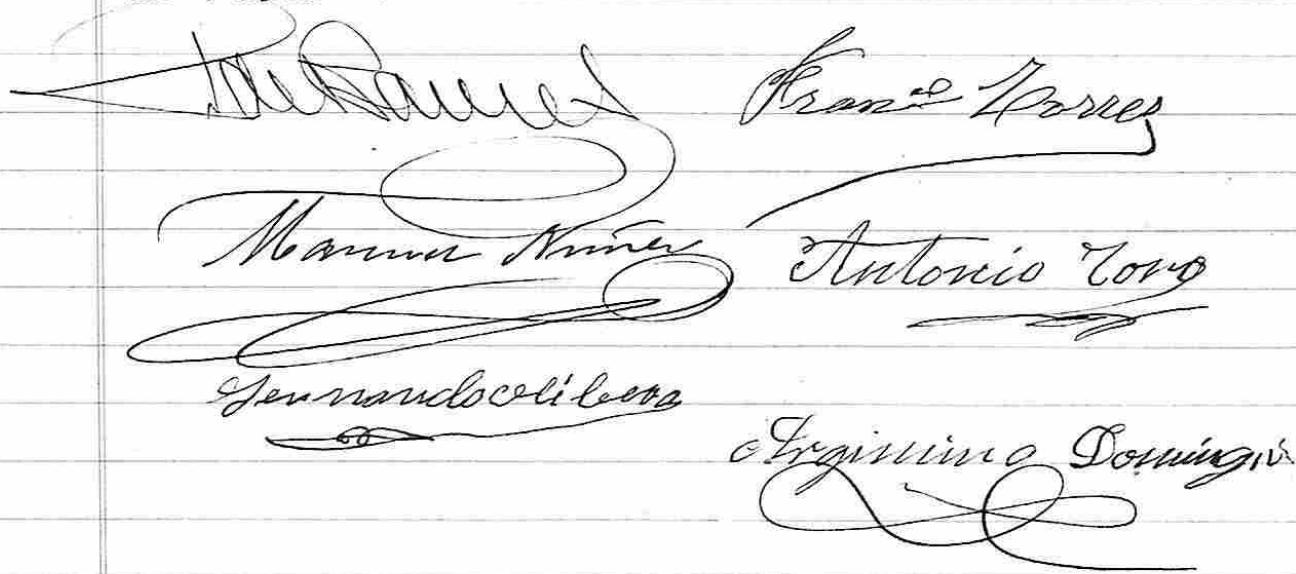 José Ramos Fran.co Torres
Manuel Núñez Antonio Toro
Fernando Olibera
Argimino Doming